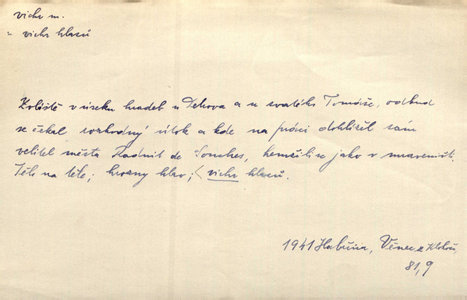 vichr m.
= vichr hlasů
Koliště v úseku hradeb u Petrova a u svatého Tomáše, odkud
se čekal rozhodný útok a kde na práci dohlížel sám
velitel města Raduit de Souches, hemžilo se jako v mraveništi.
Tělo na těle; hrozny hlav; vichr hlasů.
1941 Habřina, Věnec z klasů,
81,9